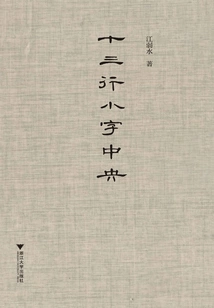 十三行小字中央
江弱水 著
浙江大学出版社